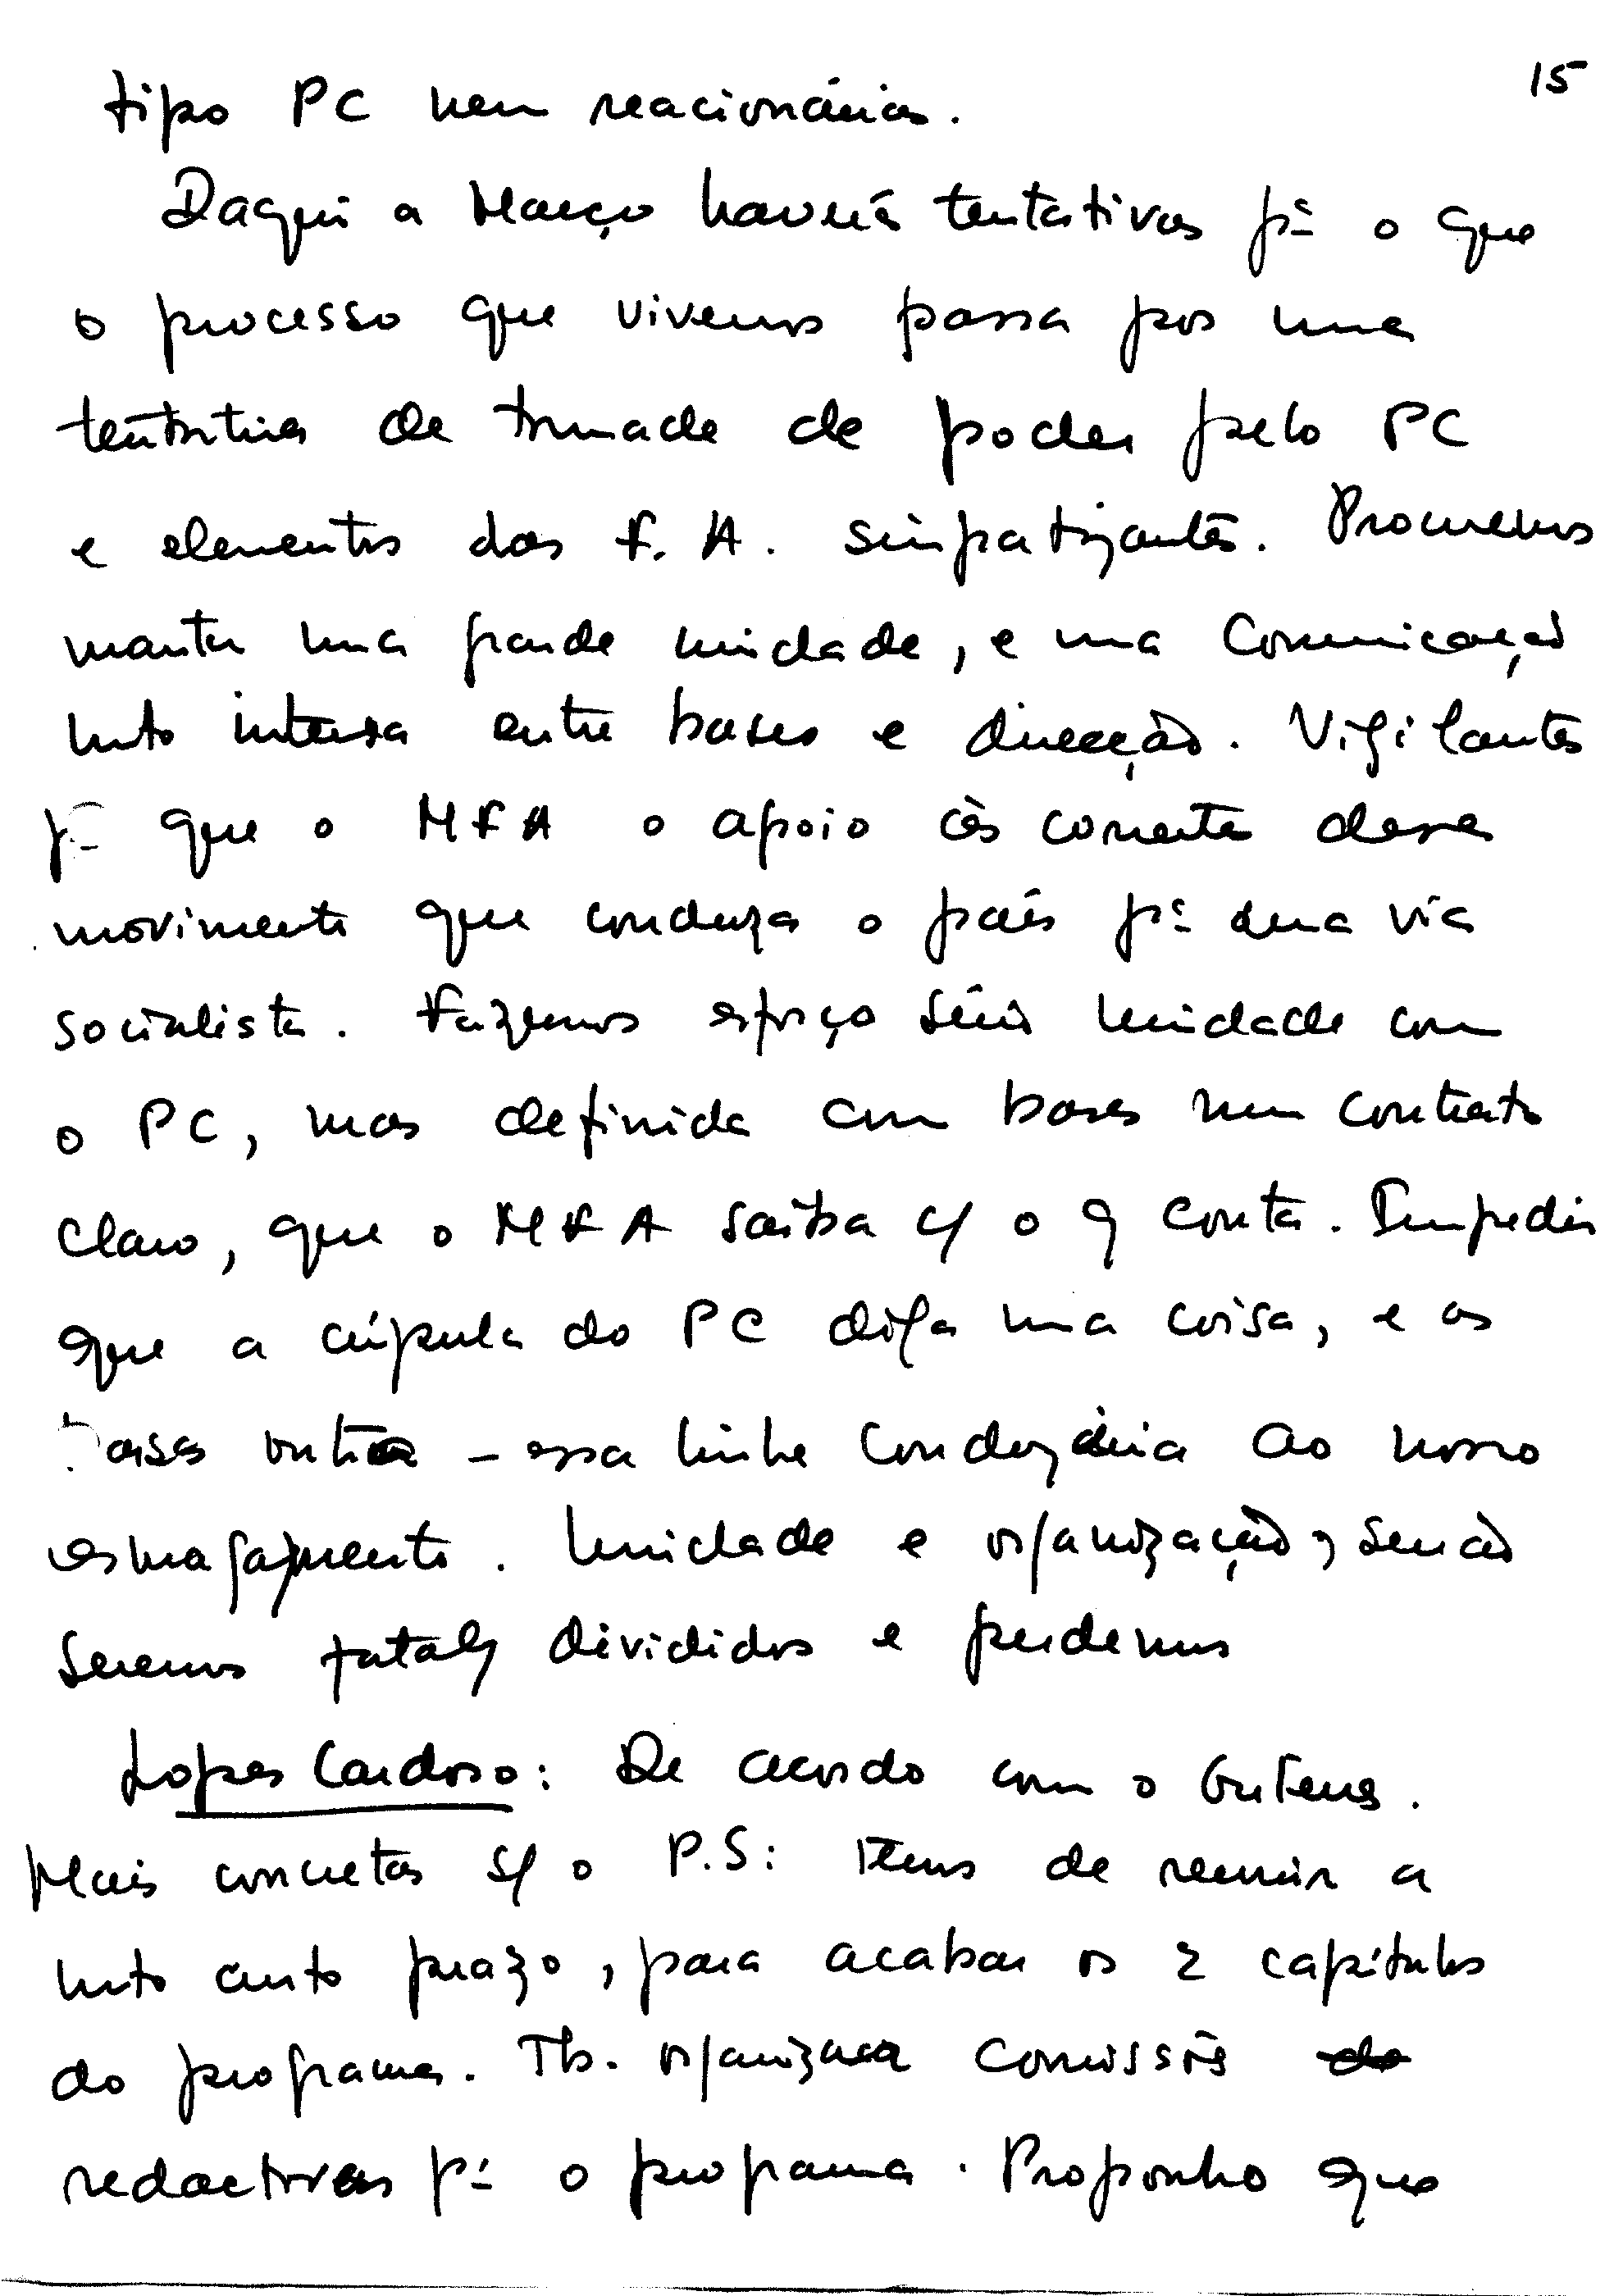 15
tipo PC nem reacionárias.
Daqui a Março haverá tentativas pª o que
o processo que vivemos passa por uma
tentativa de tomada de poder pelo PC
e elementos das F. A. simpatizantes. Procuremos
manter uma grande unidade, e uma comunicação
mto intensa entre bases e direcção. Vigilantes
pª que o MFA o apoio às corrente desse
movimento que conduza o país pª uma via
socialista. Fazemos esforço séria unidade com
o PC, mas definida em bases num contrato
claro, que o MFA saiba c/ o q conta. Impedir
que a cúpula do PC diga uma coisa, e as
bases outra - essa linha conduziria ao nosso
esmagamento. Unidade e organização, senão
seremos fatal/ divididos e perdemos
Lopes Cardoso: De acordo com o
Mais concretas s/ o P.S: Temos de reunir a
mto curto prazo, para acabar os 2 capítulos
do programa. Tb. organizar comissões do
redactoras pª o programa. Proponho que